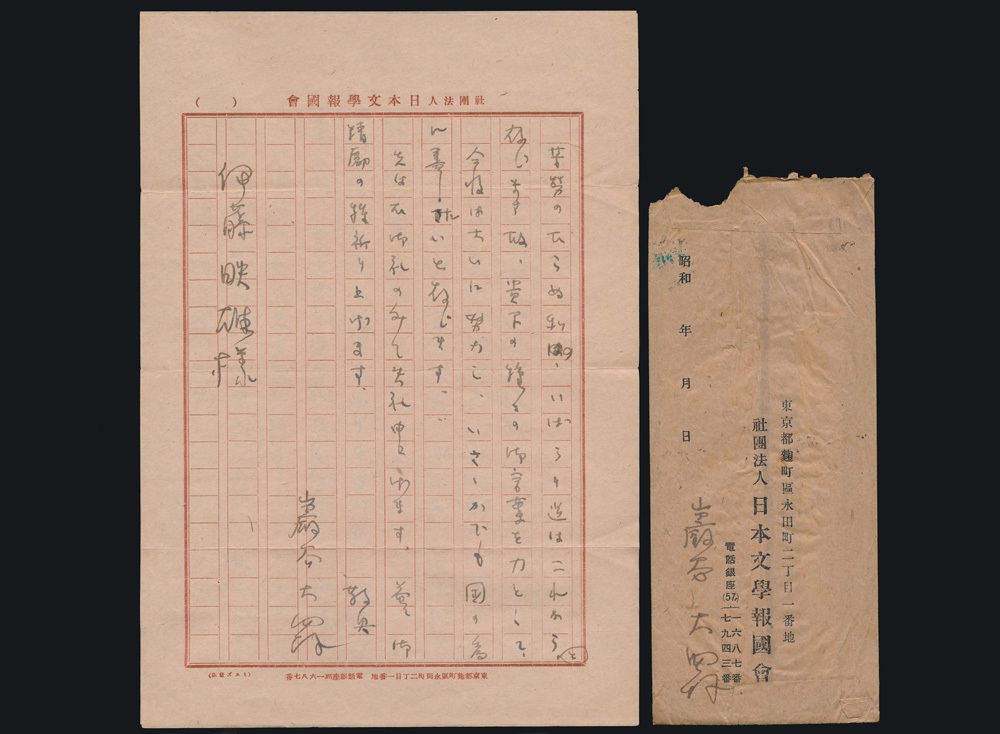 社團法人日本文學報國會
(　)
苦勞のたらぬ私の、いばらの道はこれからと
存じます故、貴下の種々の御言葉を力として、
今後は大いに努力し、いさゝかでも國の為
に盡したいと存じます。
先は右御礼のみにて失礼申上げます。益々御
精勵の程祈り上げます。
敬具
巖谷大四
伊藤映雄様
東京都麹町區永田町二丁目一番地 電話銀座一六八七番
東京都麹町區永田町二丁目一番地
社團法人 日本文學報國會
電話銀座(57)一六八七番
七九四三番
昭和 年 月 日
巖谷大四